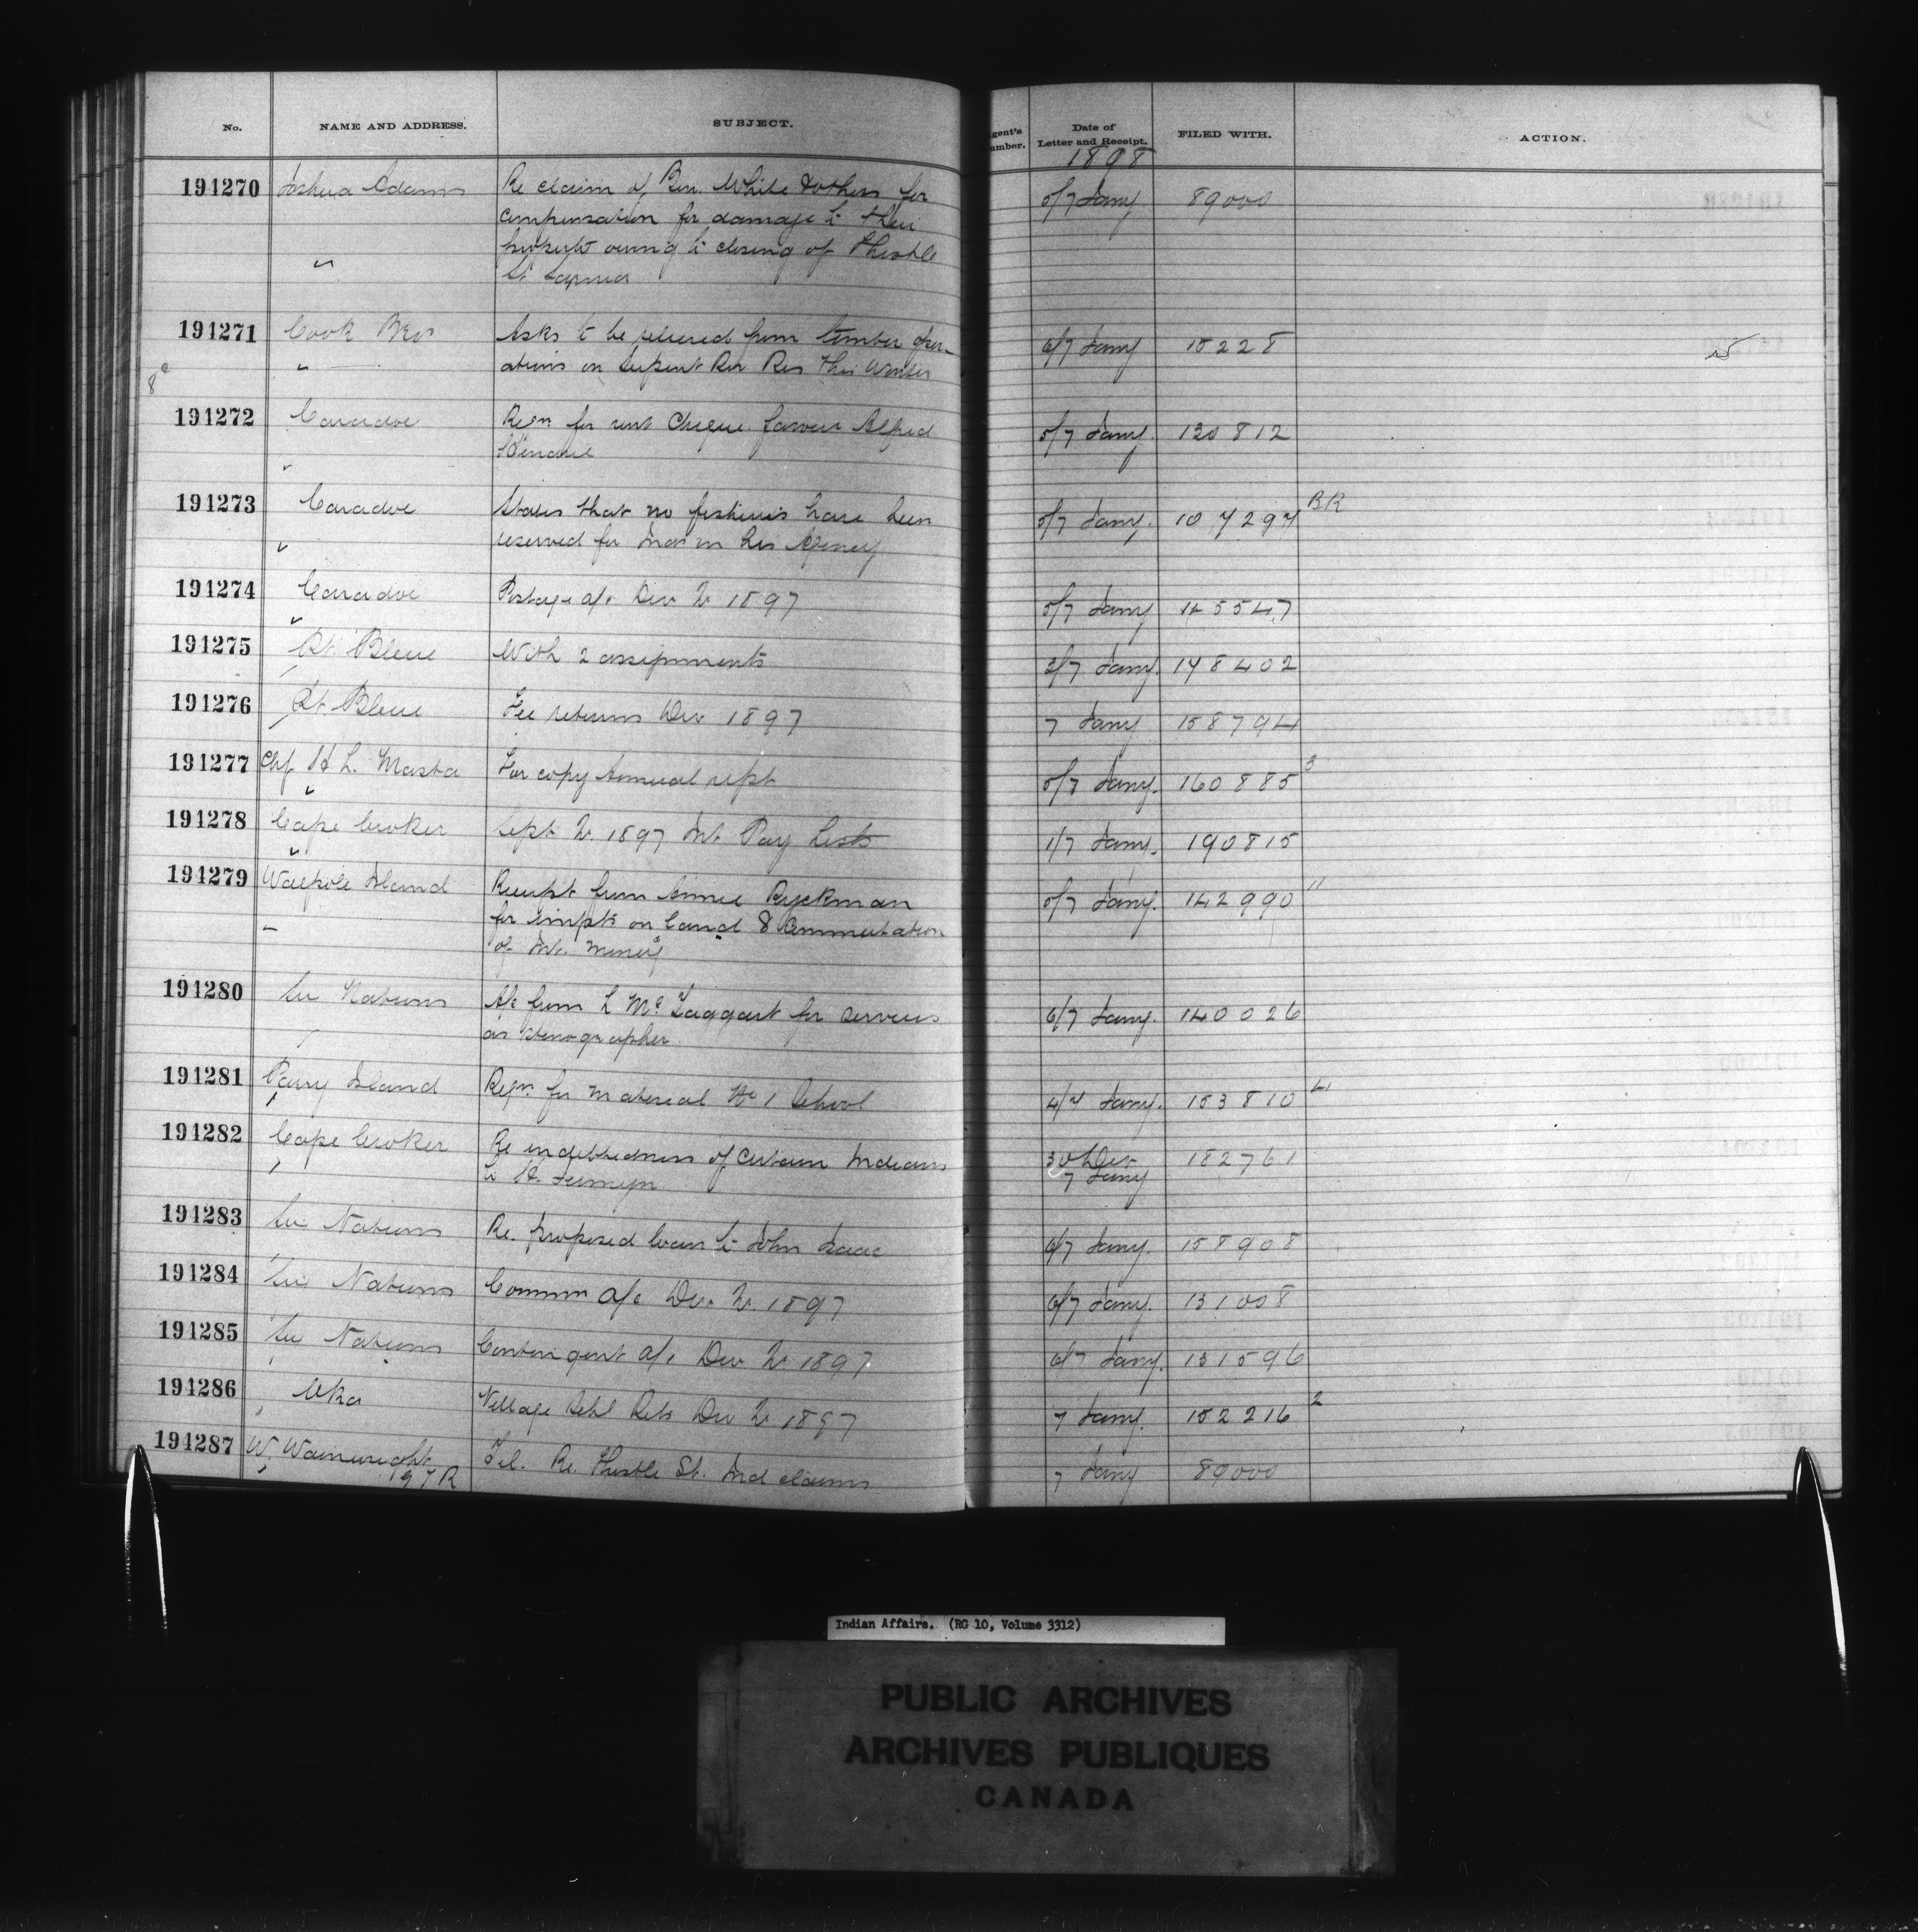 No. NAME AND ADDRESS. SUBJECT. gent's umber. Date of Letter and Receipt. FILED WITH. ACTION.
1898
194270 Joshua Adams Re claim of Ben. White & others for 5/7 Jany 89000
compensation for damage to their
property owing to closing of Thistle
St Sarnia
194271 Cook Bros Asks to be relieved from timber oper- 6/7 Jany 15228
ations on Serpent Riv Res this Winter
194272 Caradoc Reqn for rent Cheque favour Alfred 5/7 Jany. 130812
194273 Caradoc States that no fisheries have been 5/7 Jany. 107297 BR
reserved for Inds in his Agency
194274 Caradoc Postage a/c Dec Qr 1897 5/7 Jany 145547
194275 Pt. Bleue With 2 assignments 3/7 Jany. 148402
194276 Pt. Bleue Fee returns Dec 1897 7 Jany 158794
194277 Chf H L. Masta For copy Annual rept 5/7 Jany. 160885 3
194278 Cape Croker Sept Qr. 1897 Int Pay Lists 1/7 Jany. 190815
194279 Walpole Island Receipt from Annie Ryckman 5/7 Jany. 142990 "
for impts on land & Commutation
of Int. money
194280 Six Nations A/c from L McTaggart for services 6/7 Jany. 140026
as stenographer
194281 Parry Island Reqn. for material No 1 School 4/7 Jany. 153810 4
194282 Cape Croker Re indebtedness of certain Indians 30 Dec 182761
to H. 7 Jany
194283 Six Nations Re. proposed loan to John Isaac 6/7 Jany. 158908
194284 Six Nations Commn a/c Dec Qr. 1897 6/7 Jany. 131008
194285 Six Nations Contingent a/c Dec Qr 1897 6/7 Jany. 131596
194286 Oka Village Schl Rets Dec Qr 1897 7 Jany. 152216 2
194287 W. Wainwright Tel. Re. Thistle St. Ind claims 7 Jany 89000
Indian Affairs. (RG 10, Volume 3312)
PUBLIC ARCHIVES
ARCHIVES PUBLIQUES
CANADA